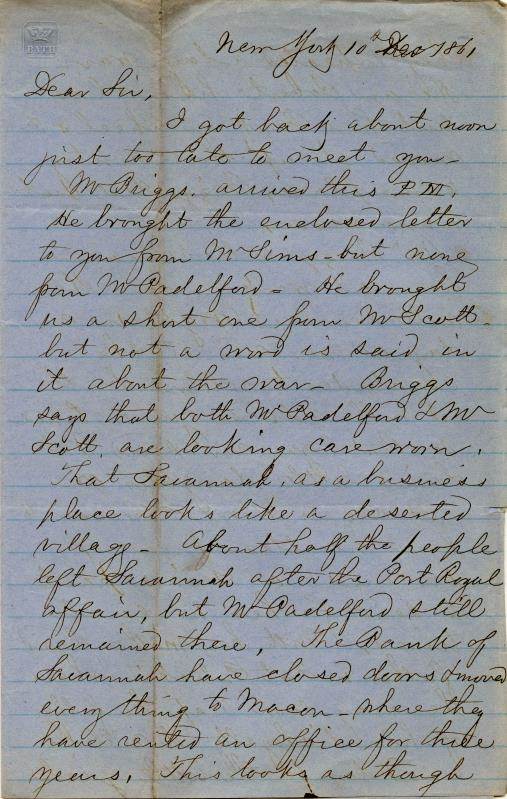 BATH
New York 10th Dec 1861
Dear Sir,
I got back about noon
just too late to meet you -
Mr Briggs. arrived this P M.
He brought the enclosed letter
to you from Mr Sims - but none
from Mr Padelford - He brought
us a short one from Mr Scott -
but not a word is said in
it about the war - Briggs
says that both Mr Padelford & Mr
Scott, are looking care worn.
That Savannah, as a business
place looks like a deserted
village - About half the people
left Savannah after the Port Royal
affair, but Mr Padelford still
remained there, The Bank of
Savannah have closed doors & moved
everything to Macon - where they
have rented an office for three
years. This looks as though